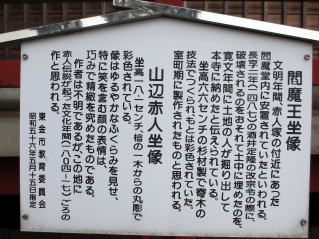 閻魔王坐像
文明年間、赤人塚の付近にあった
閻魔堂内に安置されていたといわれる。
長享二年(一四八八)の酒井定隆の改宗令の際に、
破壊されるのをおそれて土中に埋めたのを、
寛文年間に土地の人が掘り出して
本寺に納めたと伝えられている。
坐高六六センチの杉材製で寄木の
技法でつくられもとは彩色されていた。
室町期に製作されたものと思われる。
山辺赤人坐像
坐高二八センチ、檜の一木からの丸彫で
彩色されている。
像はゆるやかなふくらみを見せ、
特に笑を含む顔の表情は、
巧みで精緻を究めたものである。
作者は不明であるが、この地に
赤人伝説が起った文化年間(一八〇四-一七)ごろの
作と思われる。
東金市教育委員会
昭和五十六年五月十五日指定